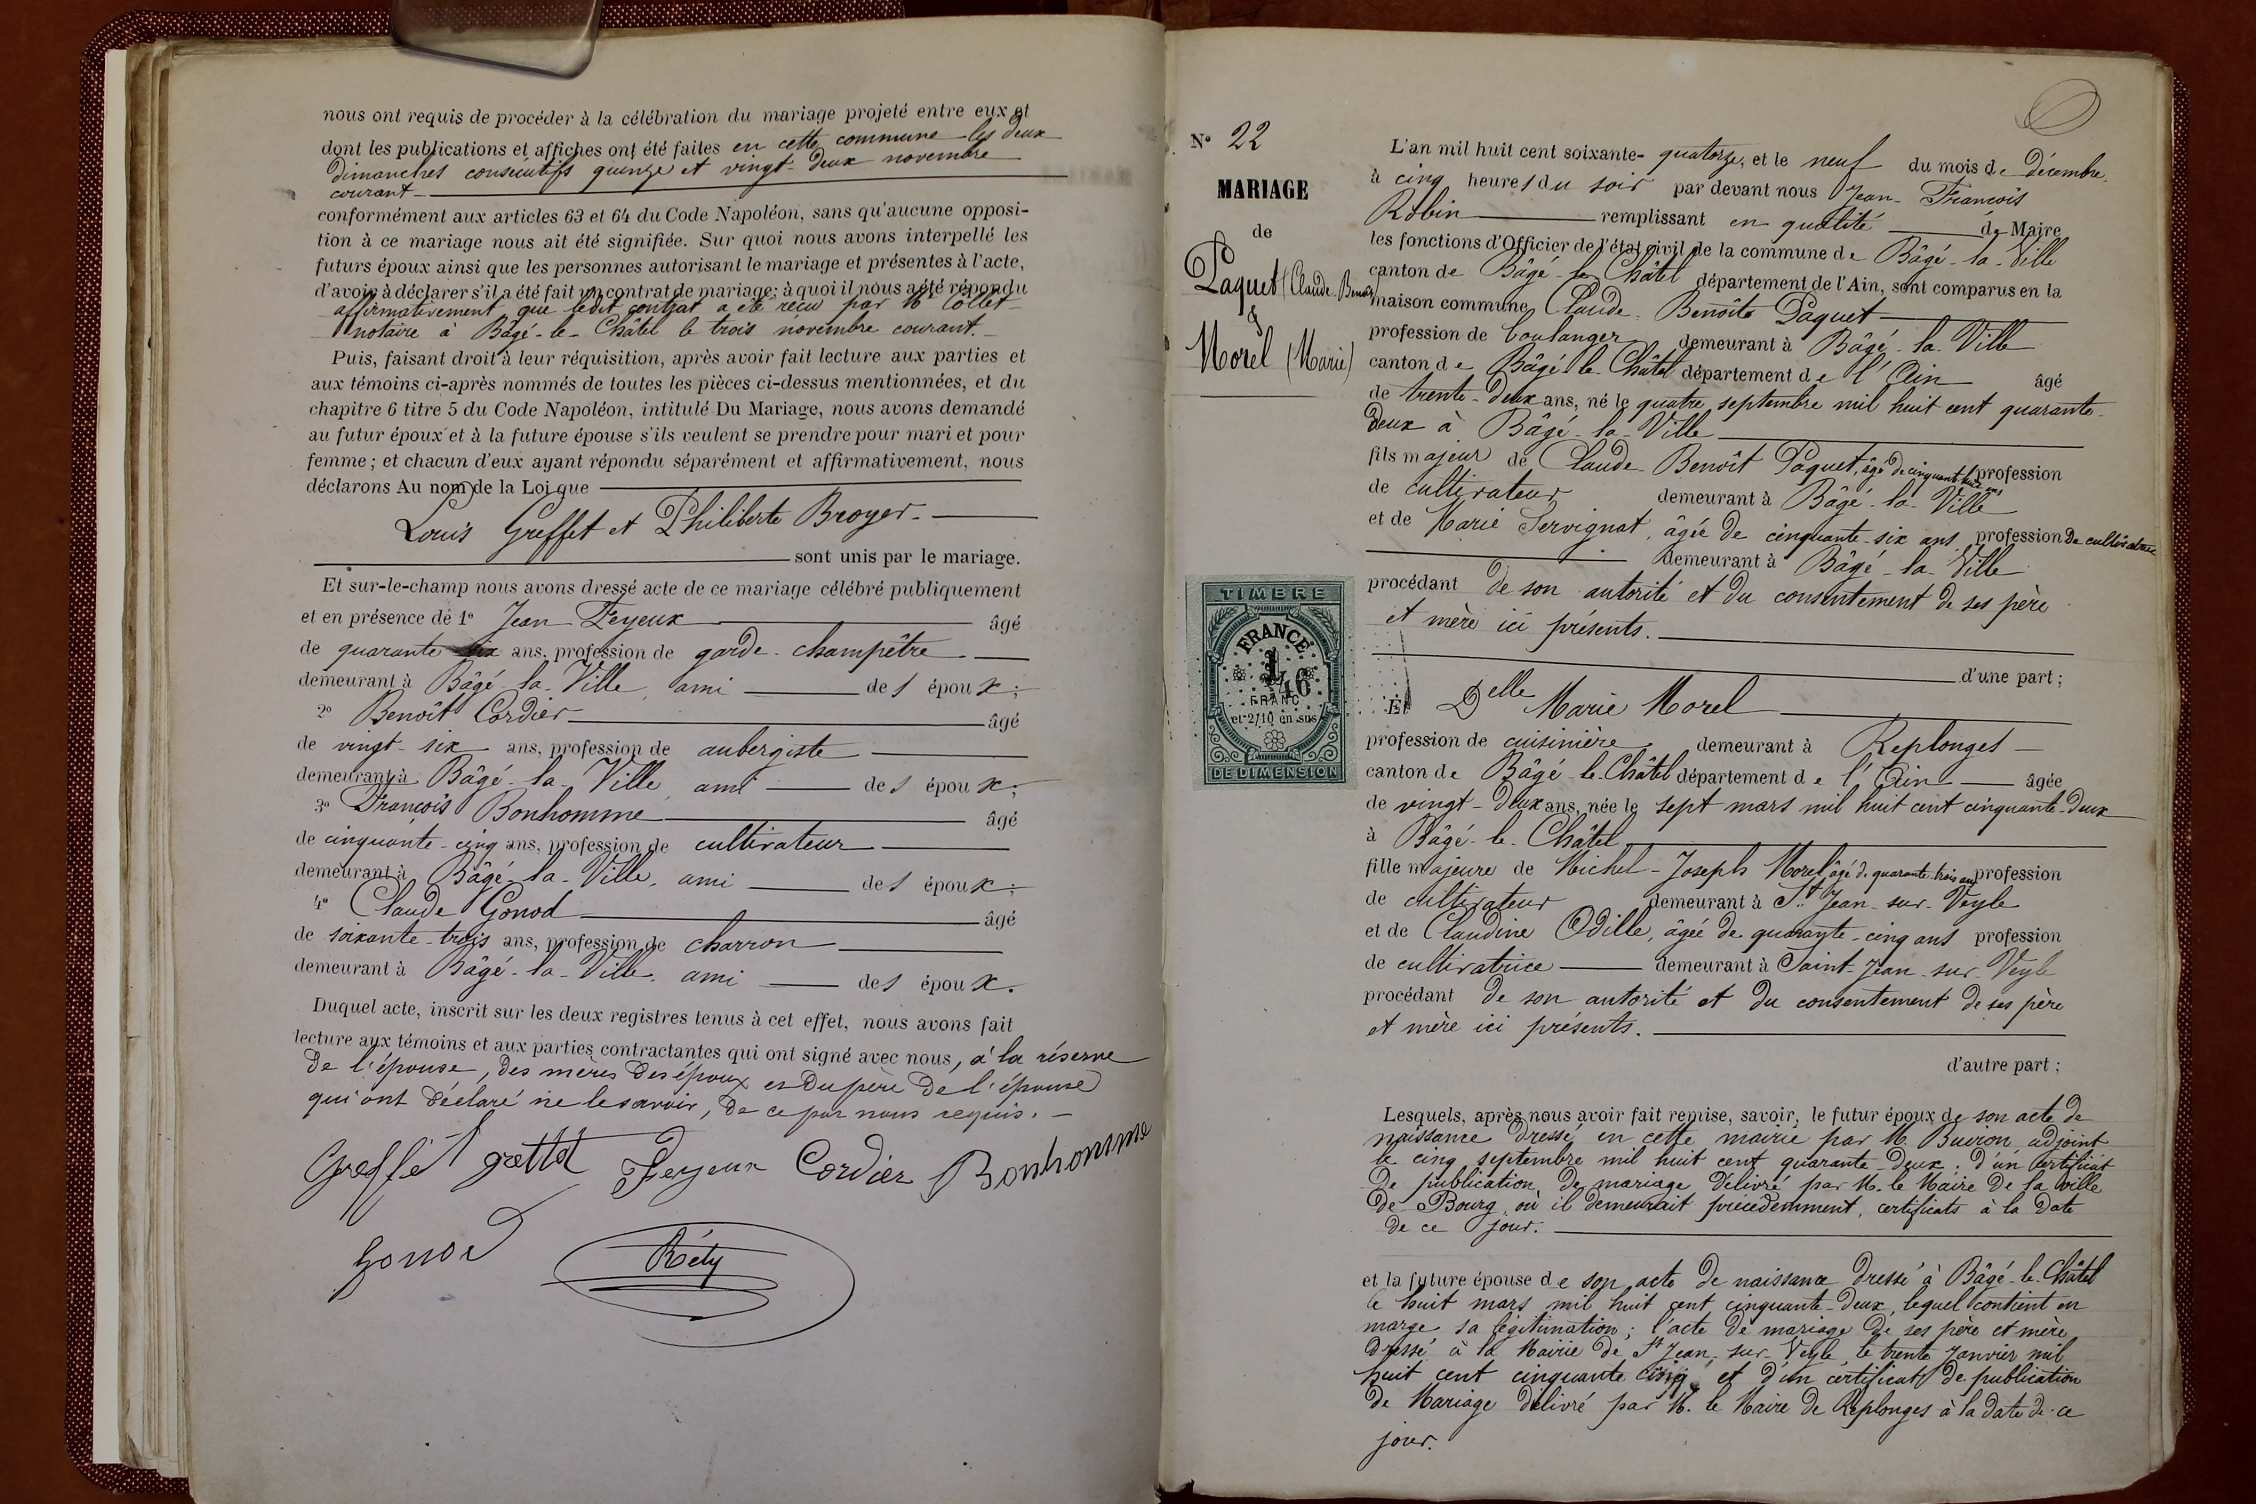 nous ont requis de procéder à la célébration du mariage projeté entre eux et
dont les publications et affiches ont été faites en cette commune les deux
dimanches consécutifs quinze et vingt-deux novembre
courant
conformément aux articles 63 et 64 du Code Napoléon, sans qu'aucune opposi-
tion à ce mariage nous ait été signifiée. Sur quoi nous avons interpellé les
futurs époux ainsi que les personnes autorisant le mariage et présentes à l'acte,
d'avoir à déclarer s'il a été fait un contrat de mariage; à quoi il nous a été répondu
affirmativement que ledit contrat a été reçu par Me Collet
notaire à Bâgé-le-Châtel le trois novembre courant.
Puis, faisant droit à leur réquisition, après avoir fait lecture aux parties et
aux témoins ci-après nommés de toutes les pièces ci-dessus mentionnées, et du
chapitre 6 titre 5 du Code Napoléon, intitulé Du Mariage, nous avons demandé
au futur époux et à la future épouse s'ils veulent se prendre pour mari et pour
femme; et chacun d'eux ayant répondu séparément et affirmativement, nous
déclarons Au nom de la Loi que
Louis Greffet et Philiberte Broyer.
sont unis par le mariage.
Et sur-le-champ nous avons dressé acte de ce mariage célébré publiquement
et en présence de 1º Jean Feyeux âgé
de quarante ans, profession de garde-champêtre
demeurant à Bâgé-la-Ville, ami des époux;
2º Benoît Cordier âgé
de vingt-six ans, profession de aubergiste
demeurant à Bâgé-la-Ville, ami des époux;
3º François Bonhomme âgé
de cinquante-cinq ans, profession de cultivateur
demeurant à Bâgé-la-Ville, ami des époux;
4º Claude Gonod âgé
de soixante-trois ans, profession de charron
demeurant à Bâgé-la-Ville, ami des époux.
Duquel acte, inscrit sur les deux registres tenus à cet effet, nous avons fait
lecture aux témoins et aux parties contractantes qui ont signé avec nous, à la réserve
de l'épouse, des mères des époux et du père de l'épouse
qui ont déclaré ne le savoir, de ce par nous requis.
Greffet Feyeux Cordier Bonhomme
Gonod Réty
Nº 22
MARIAGE
de
Paquet (Claude Benoit)
&
Morel (Marie)
TIMBRE
FRANCE
1
46
FRANC
et 2/10 en sus
DE DIMENSION
L'an mil huit cent soixante-quatorze, et le neuf du mois de Décembre
à cinq heures du soir par devant nous Jean-François
Robin remplissant en qualité de Maire
les fonctions d'Officier de l'état civil de la commune de Bâgé-la-Ville
canton de Bâgé-le-Châtel département de l'Ain, sont comparus en la
maison commune Claude-Benoîte Paquet
profession de boulanger demeurant à Bâgé-la-Ville
canton de Bâgé-le-Châtel département de l'Ain âgé
de trente-deux ans, né le quatre septembre mil huit cent quarante-
deux à Bâgé-la-Ville
fils majeur de Claude-Benoît Paquet, âgé de cinquante-huit ans profession
de cultivateur demeurant à Bâgé-la-Ville
et de Marie Servignat, âgée de cinquante-six ans profession de cultivatrice
demeurant à Bâgé-la-Ville
procédant de son autorité et du consentement de ses père
et mère ici présents.
d'une part;
Et Delle Marie Morel
profession de cuisinière demeurant à Replonges
canton de Bâgé-le-Châtel département de l'Ain âgée
de vingt-deux ans, née le sept mars mil huit cent cinquante-deux
à Bâgé-le-Châtel
fille majeure de Michel-Joseph Morel âgé de quarante-trois ans profession
de cultivateur demeurant à St Jean-sur-Veyle
et de Claudine Odille, âgée de quarante-cinq ans profession
de cultivatrice demeurant à Saint-Jean-sur-Veyle
procédant de son autorité et du consentement de ses père
et mère ici présents.
d'autre part;
Lesquels, après nous avoir fait remise, savoir, le futur époux de son acte de
naissance dressé en cette mairie par M. Buiron adjoint
le cinq septembre mil huit cent quarante-deux; d'un certificat
de publication de mariage délivré par M. le Maire de la ville
de Bourg, où il demeurait précédemment, certificats à la date
de ce jour.
et la future épouse de son acte de naissance dressé à Bâgé-le-Châtel
le huit mars mil huit cent cinquante-deux, lequel contient en
marge sa légitimation; l'acte de mariage de ses père et mère
dressé à la Mairie de St Jean-sur-Veyle, le trente Janvier mil
huit cent cinquante cinq et d'un certificat de publication
de Mariage délivré par M. le Maire de Replonges à la date de ce
jour.